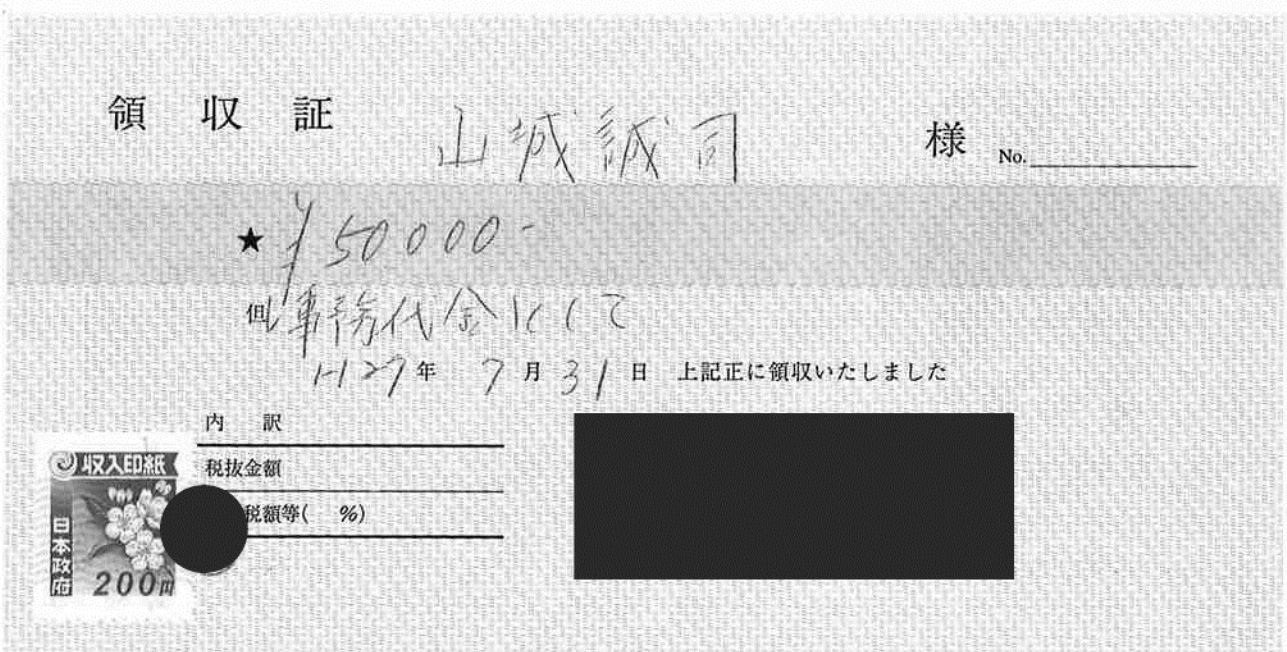 領収証 山城誠司 様 No.
★ ¥50000-
但 事務代金として
H27年 7月31日 上記正に領収いたしました
内訳
税抜金額
税額等( %)
収入印紙
日本政府
200円